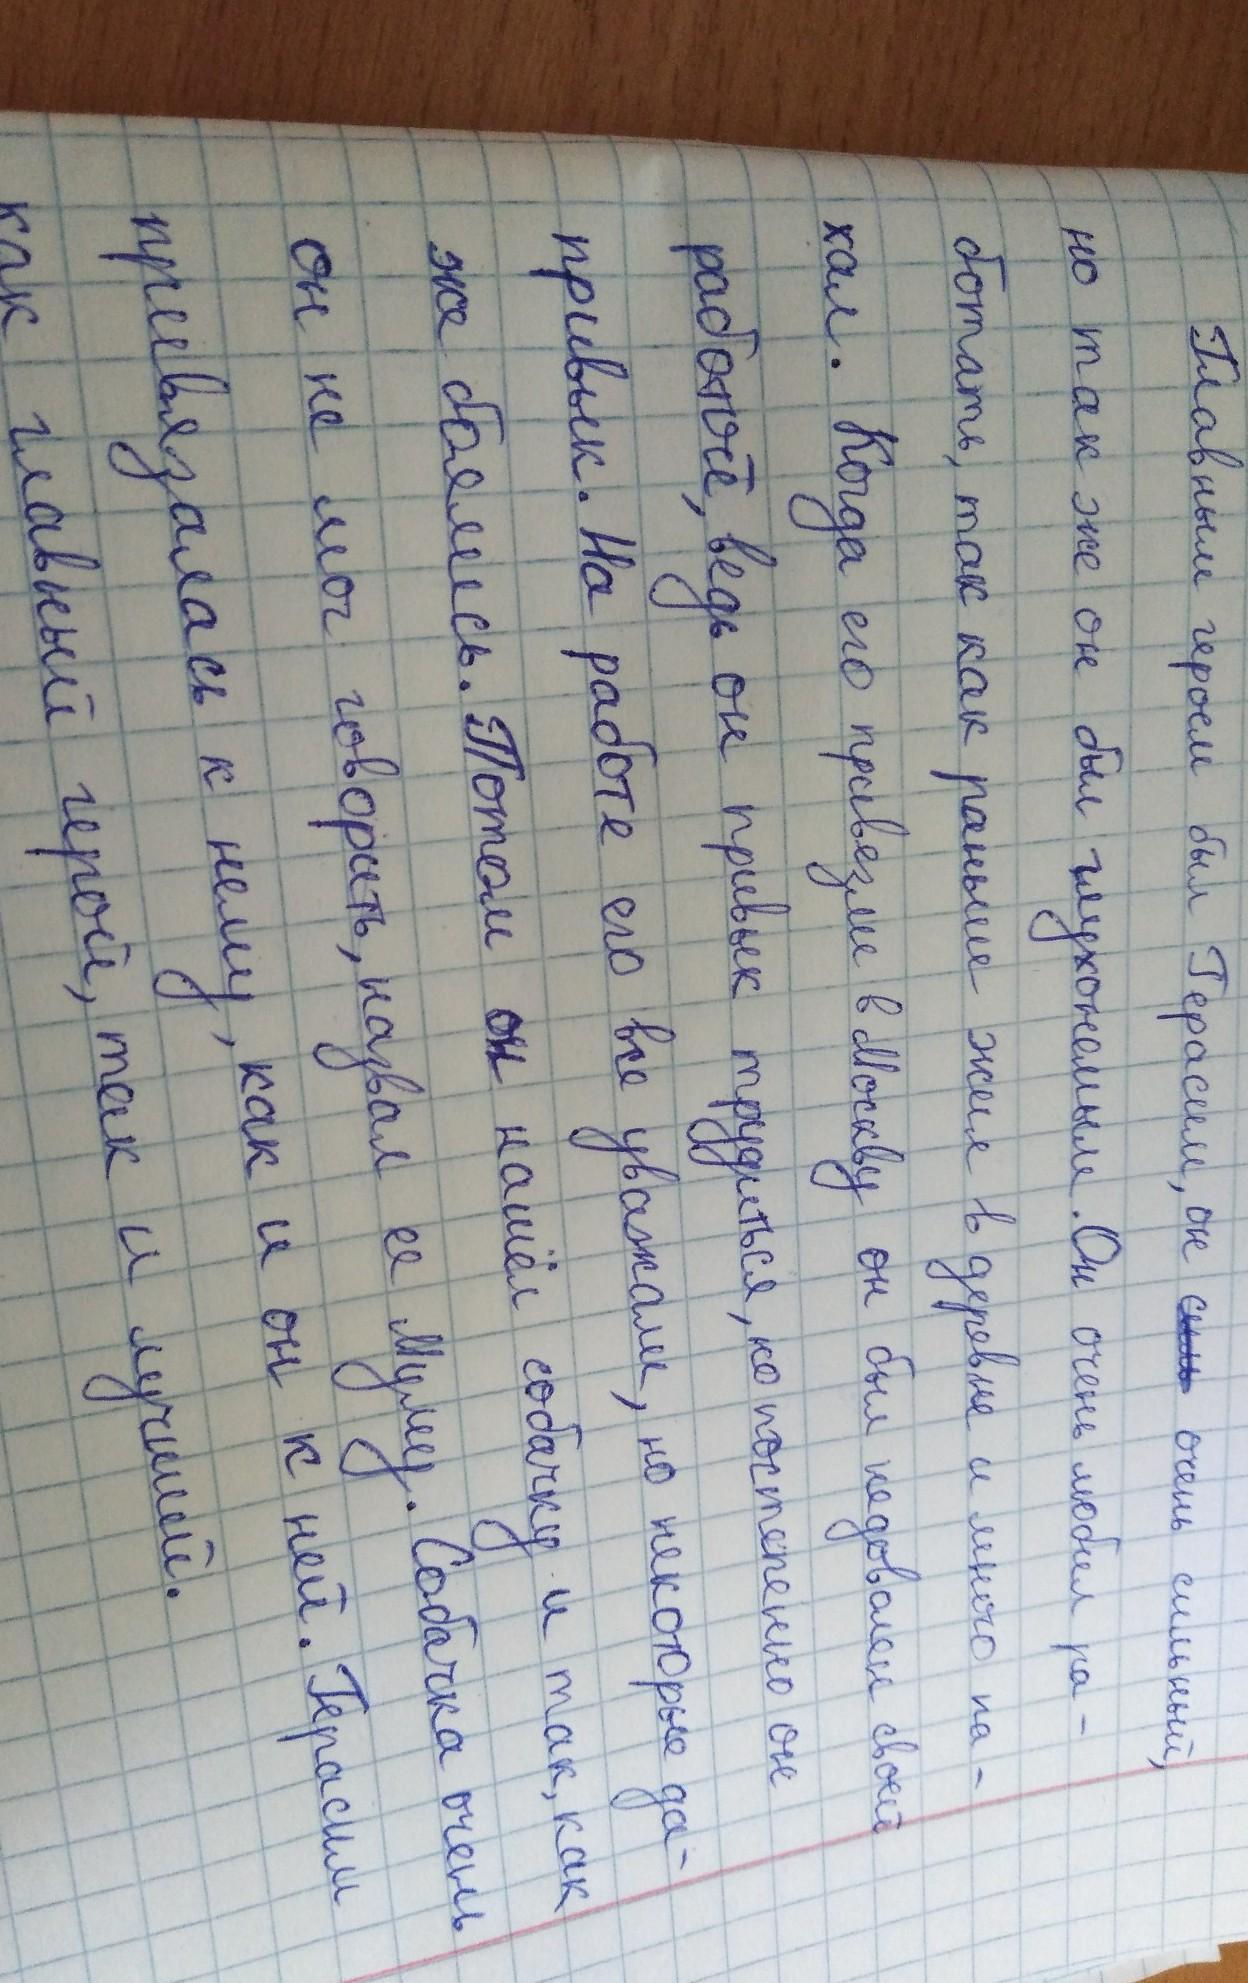 Главным героем был Герасим, он очень сильный,
но так же он был глухонемым. Он очень любил ра-
ботать, так как раньше жил в деревне и много па-
хал. Когда его привезли в Москву он был недоволен своей
работой, ведь он привык трудиться, но постепенно он
привык. На работе его все уважали, но некоторые да-
же боялись. Потом он нашёл собачку и так, как
он не мог говорить, назвал ее Муму. Собачка очень
привязалась к нему, как и он к ней. Герасим
как главный герой, так и лучший.